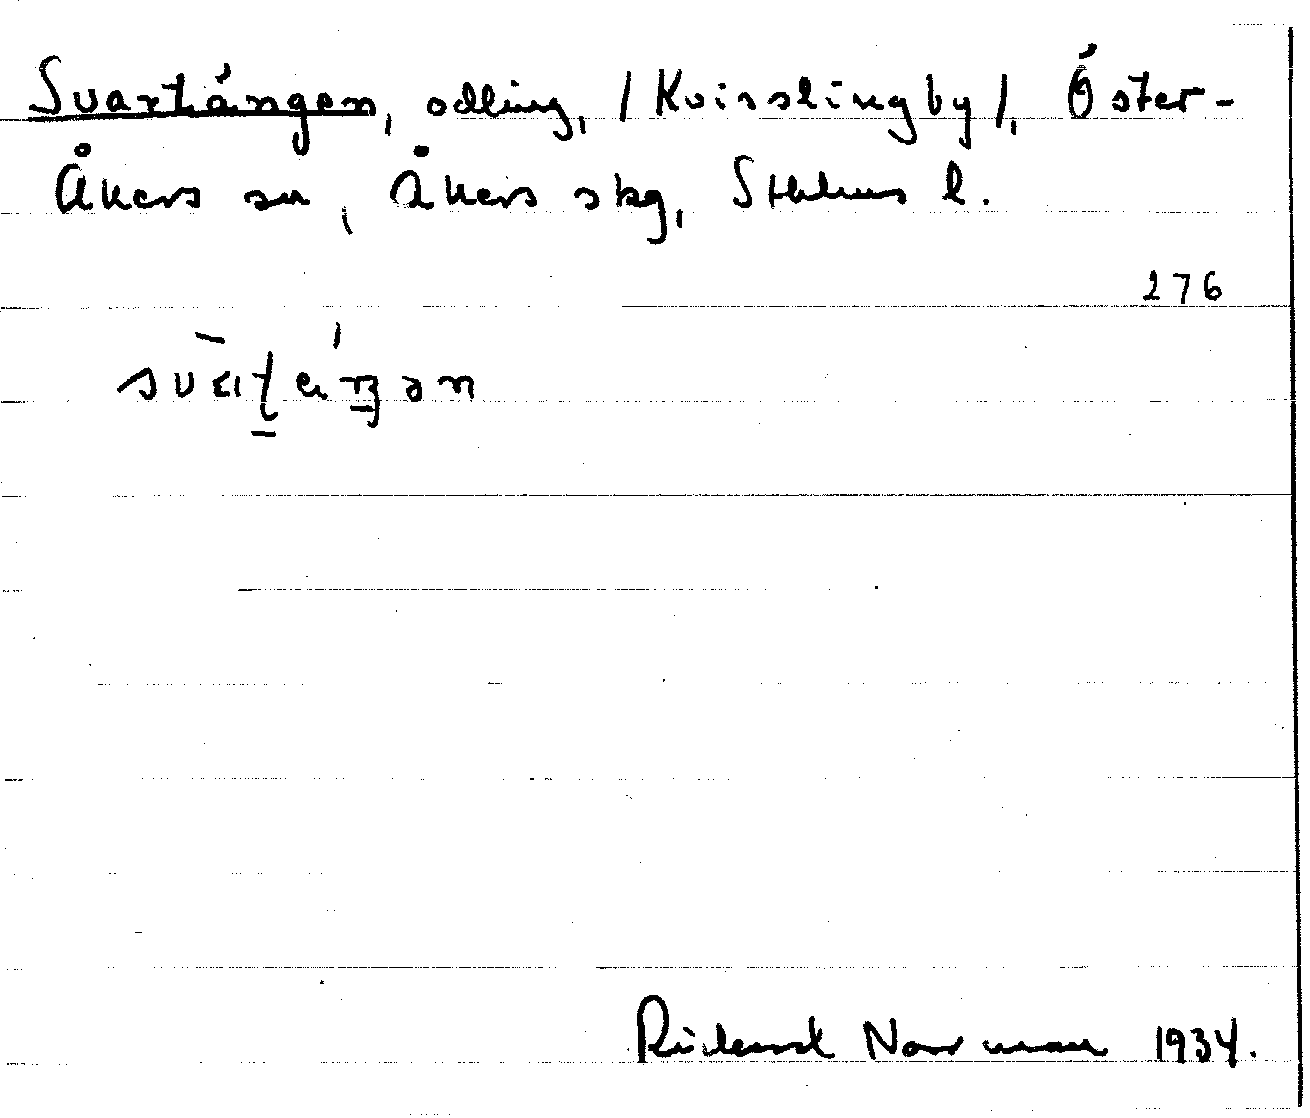 Svartängen, odling, /Kvisslingby/, Öster-
Åkers sn, Åkers skg, Sthlms l.
276
Rickard Norman 1934.